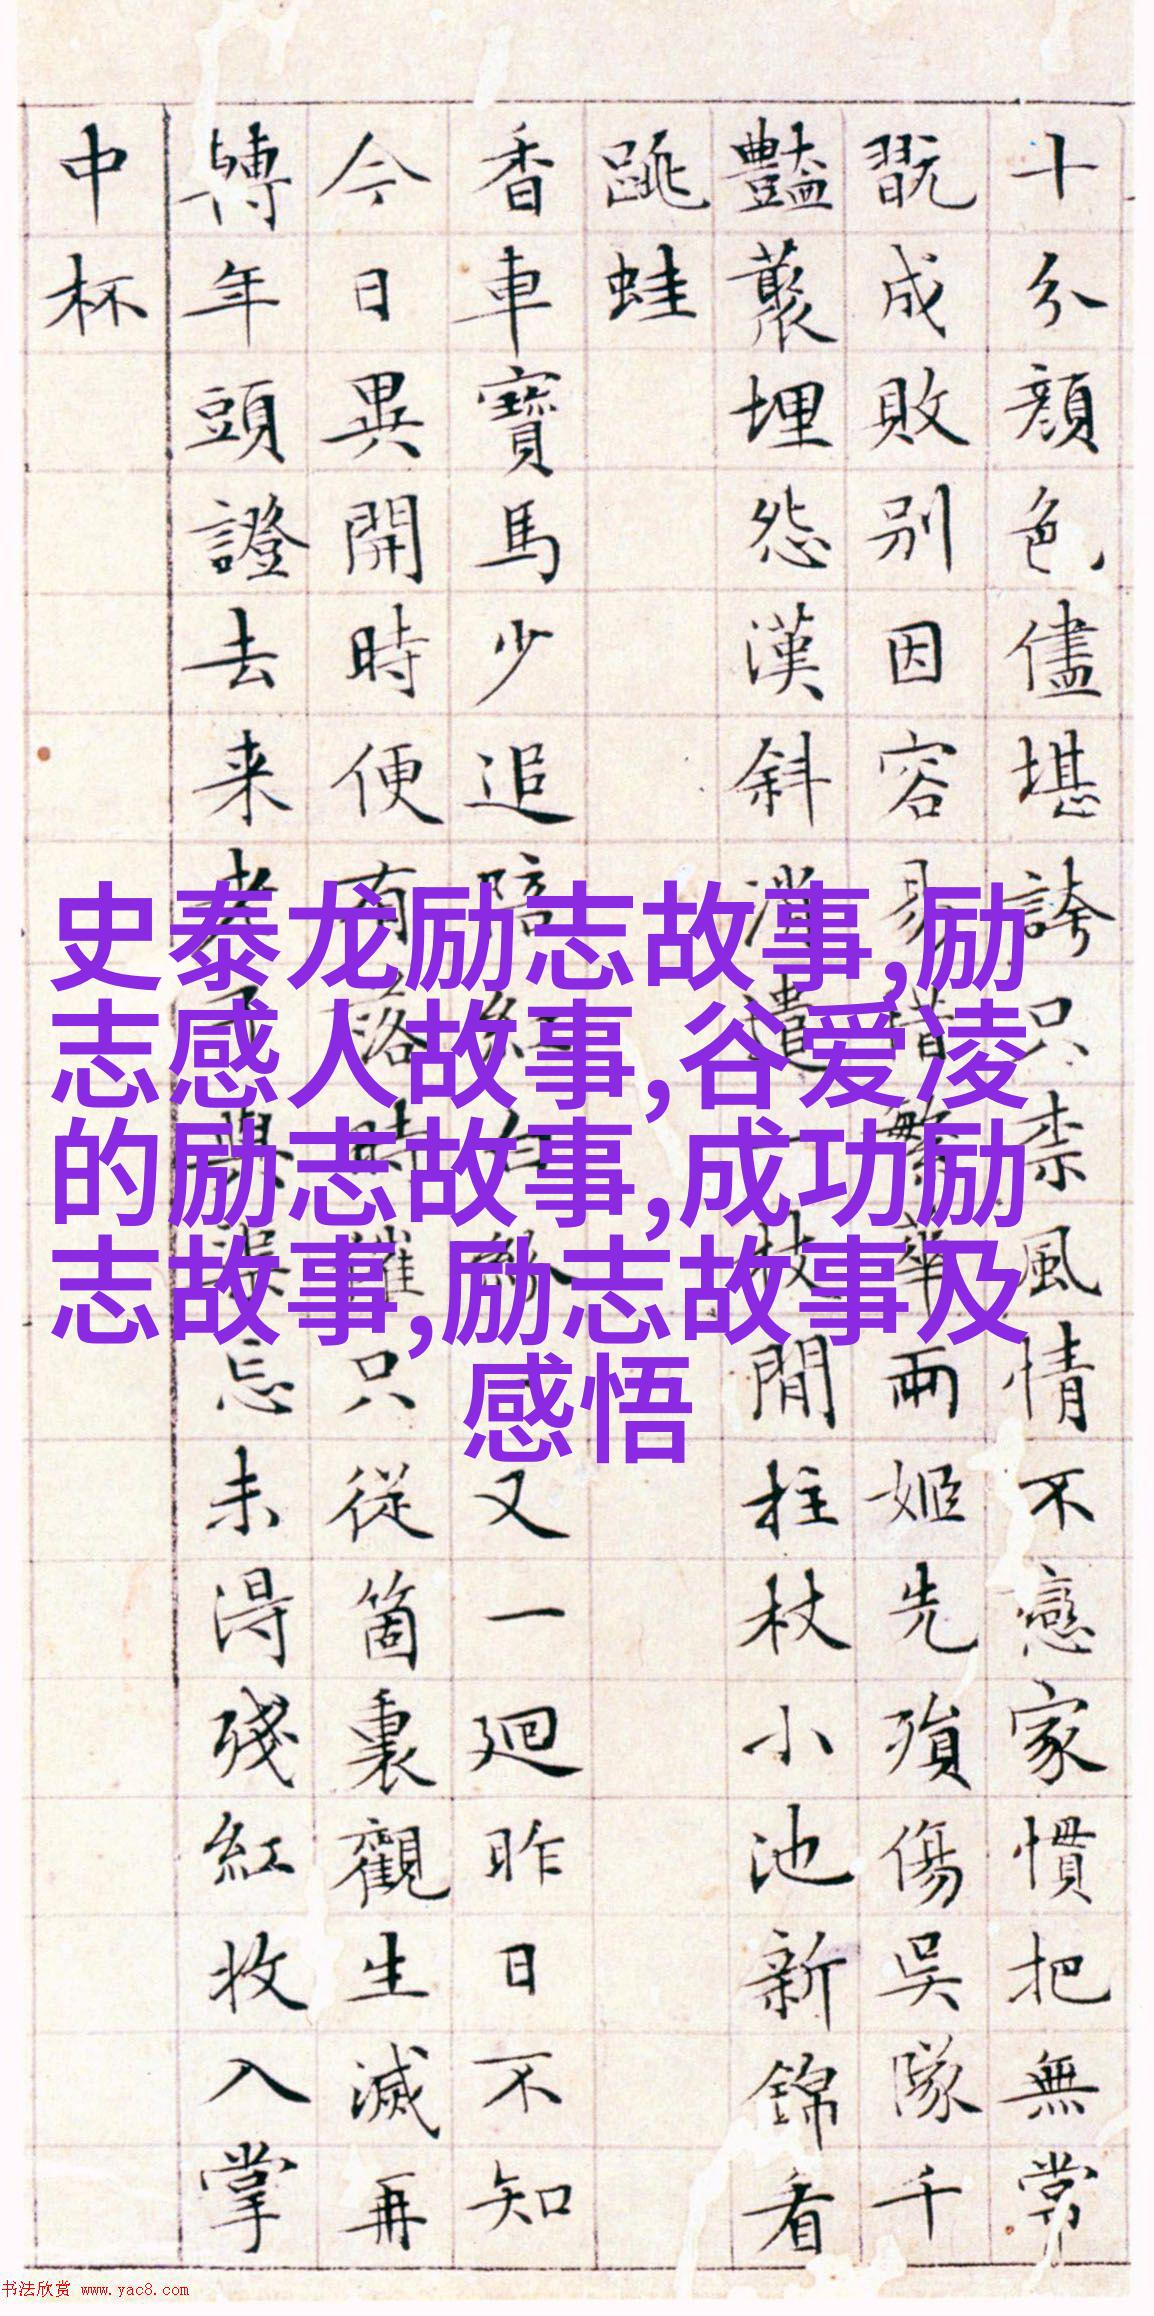 十分顔色儘堪誇只柰風情不戀家慣把無常
翫成敗別因容易惜繁華兩姬先殞傷吳隊千
豔叢埋怨漢斜消遣一枝閒柱杖小池新錦看
跳蛙
香車寶馬少追陪紅白紛又一迴昨日不知
今日異開時便有落時催只從箇裏觀生滅再
轉年頭證去来老子與渠忘未得殘紅收入掌
中杯
史泰龙励志故事,励
志感人故事,谷爱凌
的励志故事,成功励
志故事,励志故事及
感悟
书法欣赏 www.yac8.com